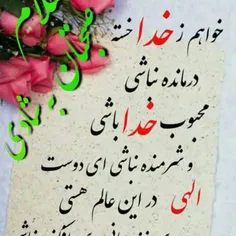 سلام
صبحتان بشادی
خواهم ز خدا خسته
درمانده نباشی
محبوب خدا باشی
و شرمنده نباشی ای دوست
الهی در این عالم هستی